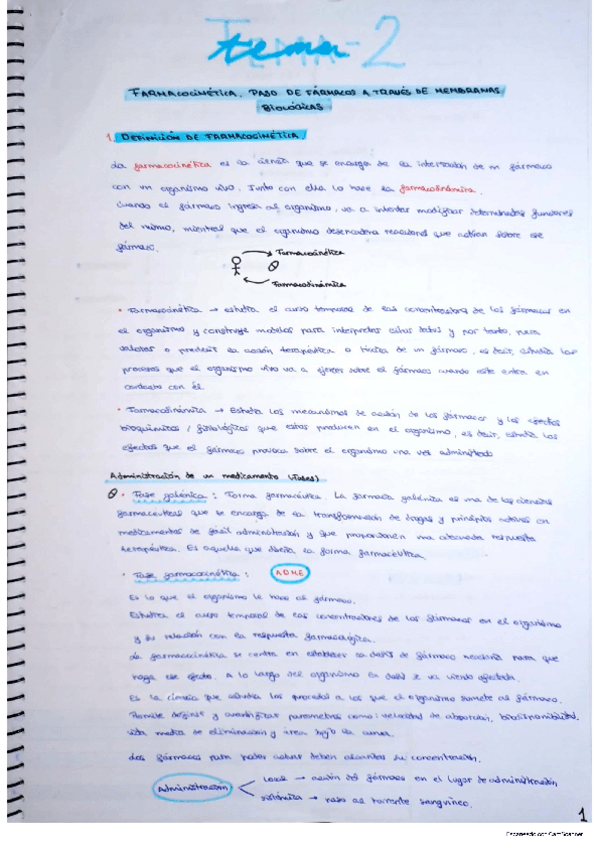 tema-2
FARMACOCINÉTICA. PASO DE FÁRMACOS A TRAVÉS DE MEMBRANAS
BIOLÓGICAS
1. DEFINICIÓN DE FARMACOCINÉTICA.
La farmacocinética es la ciencia que se encarga de la interacción de un fármaco
con un organismo vivo. Junto con ella lo hace la farmacodinámica.
Cuando el fármaco ingresa al organismo, va a intentar modificar determinadas funciones
del mismo, mientras que el organismo desencadena reacciones que actúan sobre ese
fármaco.
Farmacocinética
Farmacodinámica
• Farmacocinética → estudia el curso temporal de las concentraciones de los fármacos en
el organismo y construye modelos para interpretar estos datos y por tanto, para
valorar o predecir la acción terapéutica o tóxica de un fármaco, es decir, estudia los
procesos que el organismo vivo va a ejercer sobre el fármaco cuando este entra en
contacto con él.
• Farmacodinámia → Estudia los mecanismos de acción de los fármacos y los efectos
bioquímicos / fisiológicos que estos producen en el organismo, es decir, estudia los
efectos que el fármaco provoca sobre el organismo una vez administrado
Administración de un medicamento (fases)
• Fase galénica: Forma farmacéutica. La farmacia galénica es una de las ciencias
farmacéuticas que se encarga de la transformación de drogas y principios activos en
medicamentos de fácil administración y que proporcionen una adecuada respuesta
terapéutica. Es aquella que diseña la forma farmacéutica.
• Fase farmacocinética: ADME
Es lo que el organismo le hace al fármaco.
Estudia el curso temporal de las concentraciones de los fármacos en el organismo
y su relación con la respuesta farmacológica.
La farmacocinética se centra en establecer la dosis de fármaco necesaria para que
haga ese efecto. A lo largo del organismo la dosis se va viendo afectada.
Es la ciencia que estudia los procesos a los que el organismo somete al fármaco.
Permite definir y cuantificar parámetros como: velocidad de absorción, biodisponibilidad,
vida media de eliminación y área bajo la curva.
Los fármacos para poder actuar deben alcanzar su concentración.
Administración
Local → acción del fármaco en el lugar de administración
sistémica → paso al torrente sanguíneo.
1
Escaneado con CamScanner